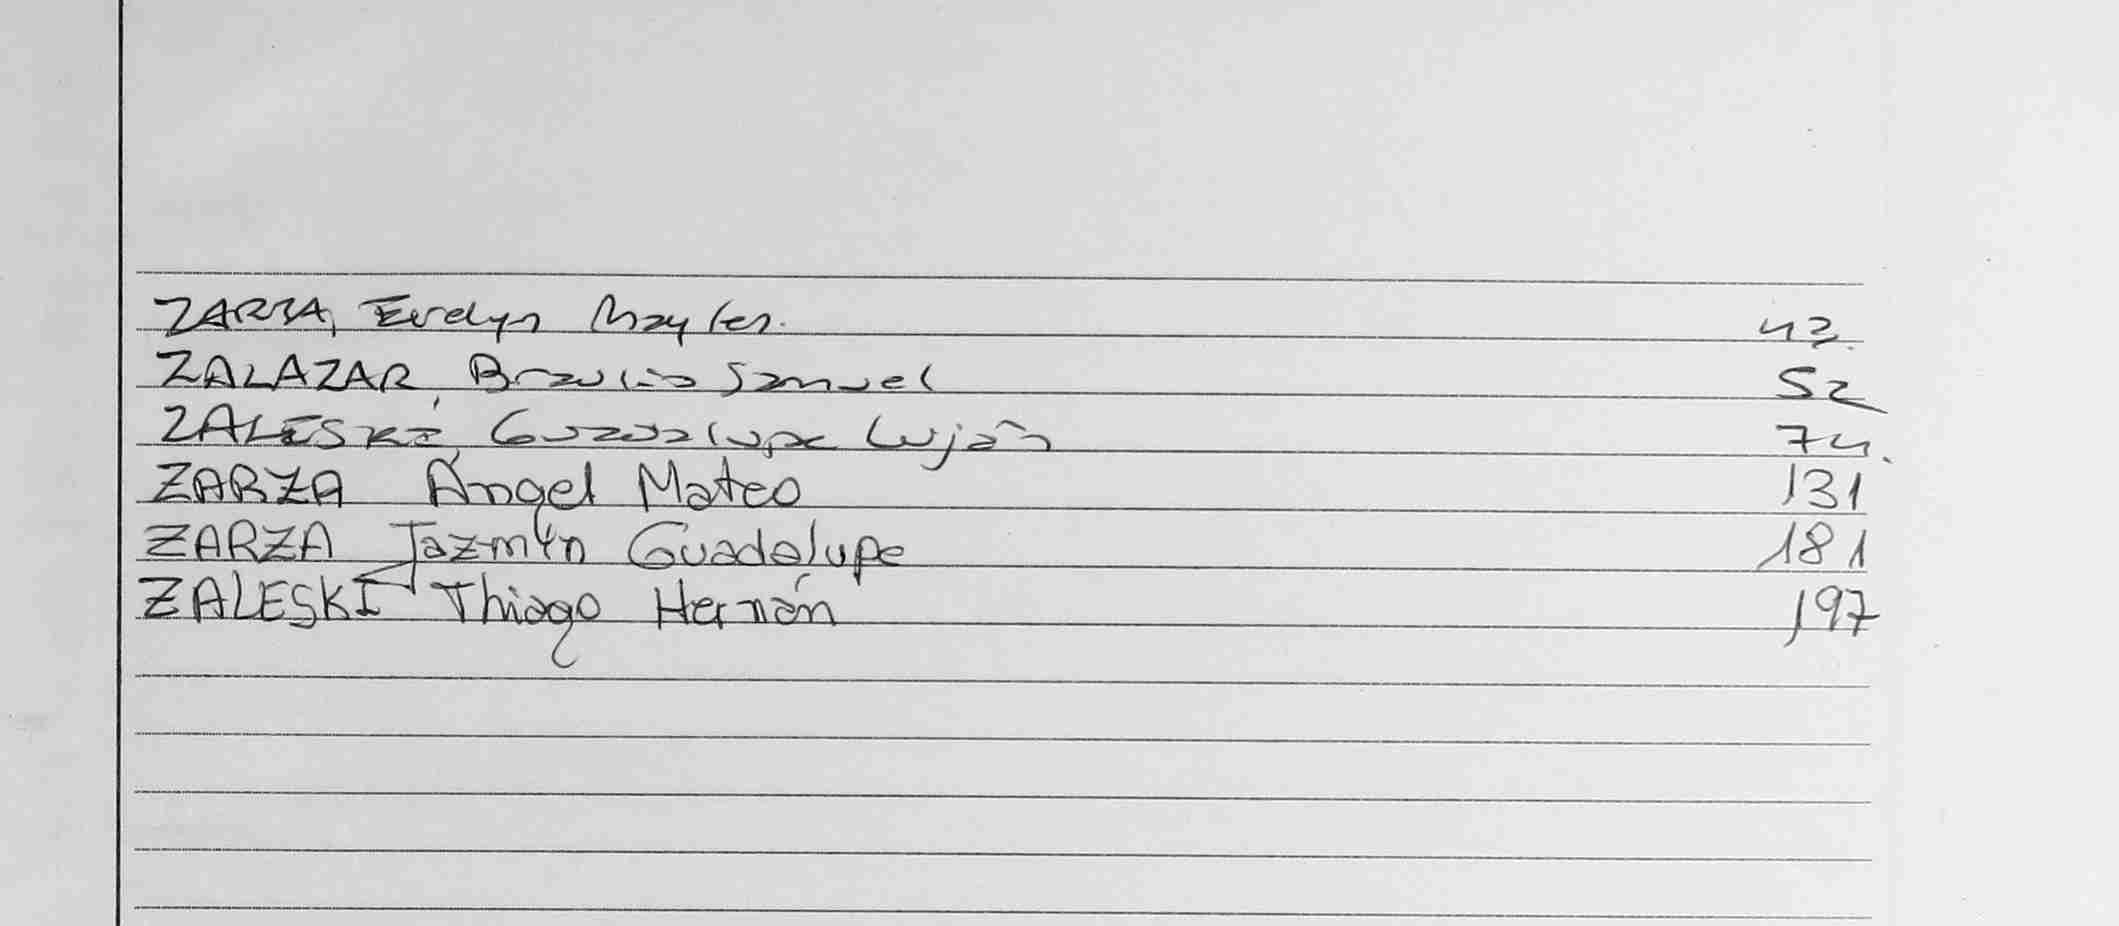 ZARZA, Evelyn Maylen. 43.
ZALAZAR, Braulio Samuel 52
ZALESKI, Guadalupe Luján 74.
ZARZA Ángel Mateo 131
ZARZA Jazmín Guadalupe 181
ZALESKI Thiago Hernán 197